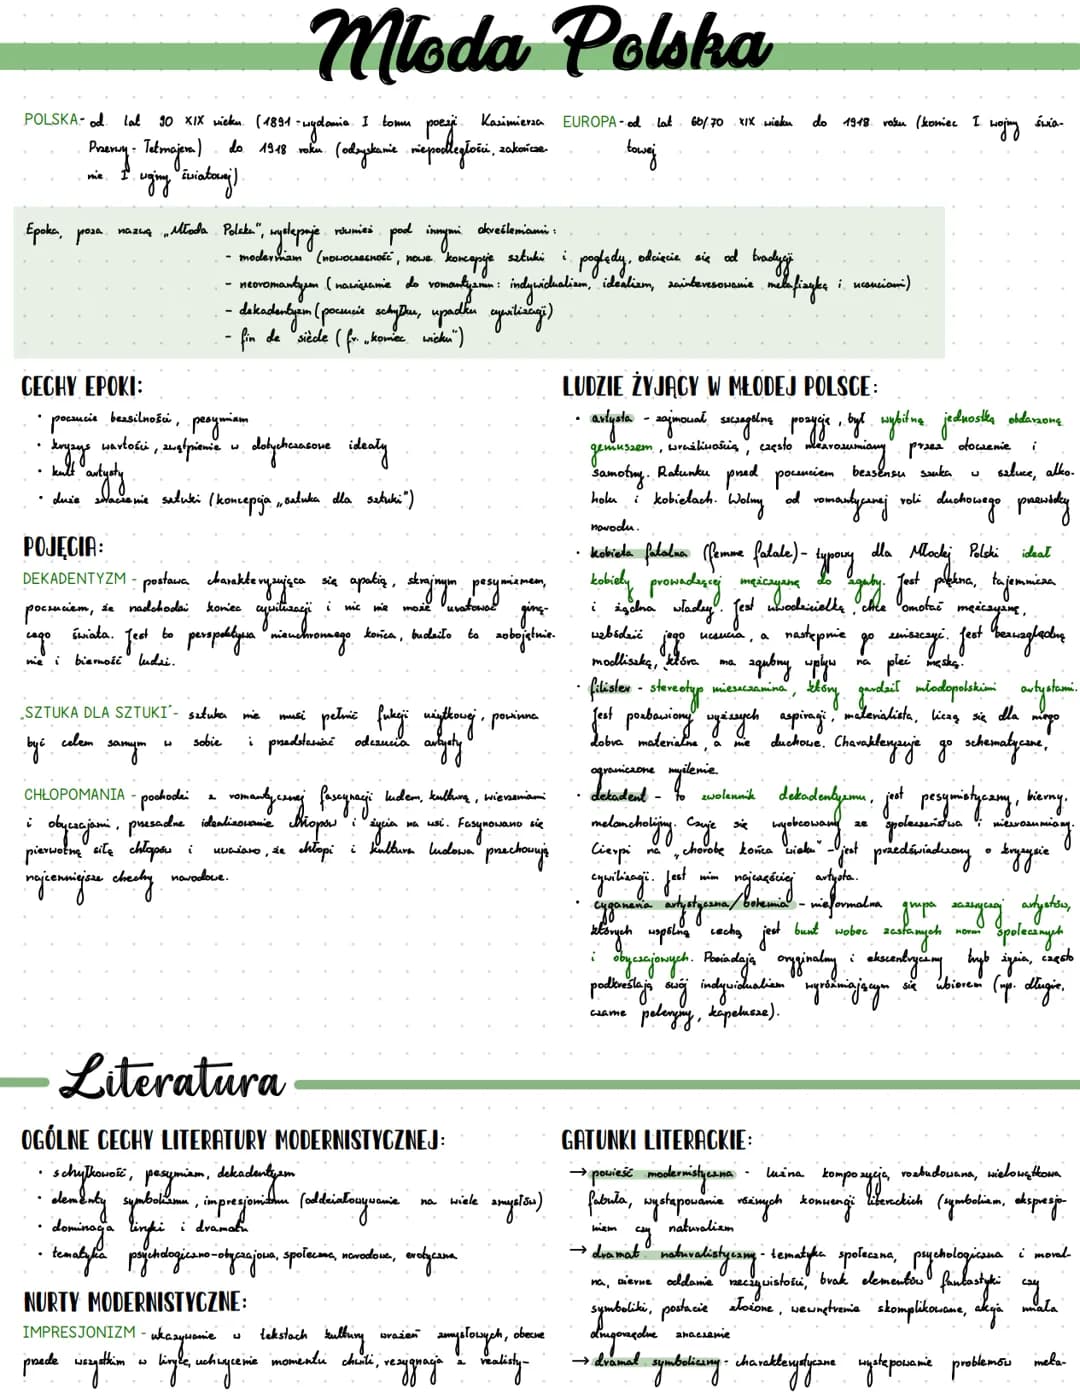 Młoda Polska
POLSKA- od lat 90 XIX wieku (1891 - wydania I tomu poezji Kazimierza
Przerwy - Tetmajera) do 1918 roku (odzyskanie niepodległości, zakończe-
nie I wojny światowej)
EUROPA - od lat 60/70 XIX wieku do 1918 roku (koniec I wojny świa-
towej
Epoka, poza nazwą „Młoda Polska", występuje również pod innymi określeniami:
- modernizm (nowoczesność, nowe koncepcje sztuki i poglądy, odcięcie się od tradycji
- neoromantyzm (nawiązanie do romantyzmu: indywidualizm, idealizm, zainteresowanie metafizyką i uczuciami)
- dekadentyzm (poczucie schyłku, upadku cywilizacji)
- fin de siècle (fr. „koniec wieku")
CECHY EPOKI:
• poczucie bezsilności, pesymizm
• kryzys wartości, zwątpienie w dotychczasowe ideały
• kult artysty
• duże znaczenie sztuki (koncepcja „sztuka dla sztuki")
POJĘCIA:
DEKADENTYZM - postawa charakteryzująca się apatią, skrajnym pesymizmem,
poczuciem, że nadchodzi koniec cywilizacji i nic nie może uratować giną-
cego świata. Jest to perspektywa nieuchronnego końca, budziło to zobojętnie-
nie i bierność ludzi.
„SZTUKA DLA SZTUKI" - sztuka nie musi pełnić fukcji użytkowej, powinna
być celem samym w sobie i przedstawiać odczucia artysty
CHŁOPOMANIA - pochodzi z romantycznej fascynacji ludem, kulturą, wierzeniami
i obyczajami, przesadne idealizowanie chłopów i życia na wsi. Fasynowano się
pierwotną siłą chłopów i uważano, że chłopi i kultura ludowa przechowują
najcenniejsze chechy narodowe.
LUDZIE ŻYJĄCY W MŁODEJ POLSCE:
• artysta - zajmował szczególną pozycję, był wybitną jednostką obdarzoną
geniuszem, wrażliwością, często niezrozumiany przez otoczenie i
samotny. Ratunku przed poczuciem bezsensu szuka w sztuce, alko-
holu i kobietach. Wolny od romantycznej roli duchowego przewódcy
narodu.
• kobieta fatalna (femme fatale) - typowy dla Młodej Polski ideał
kobiety prowadzącej mężczyznę do zguby. Jest piękna, tajemnicza
i żądna władzy. Jest uwodzicielką, chce omotać mężczyznę,
wzbudzić jego uczucia, a następnie go zniszczyć. Jest bezwzględną
modliszką, która ma zgubny wpływ na płeć męską.
• filister - stereotyp mieszczanina, który gardził młodopolskimi artystami.
Jest pozbawiony wyższych aspiracji, materialista, liczą się dla niego
dobra materialne, a nie duchowe. Charakteryzuje go schematyczne,
ograniczone myślenie.
• dekadent - to zwolennik dekadentyzmu, jest pesymistyczny, bierny,
melancholijny. Czuje się wyobcowany ze społeczeństwa i niezrozumiany.
Cierpi na „chorobę końca wieku" - jest przedświadczony o kryzysie
cywilizacji. Jest nim najczęściej artysta.
• cyganeria artystyczna/bohemia - nieformalna grupa zazwyczaj artystów,
których wspólną cechą jest bunt wobec zastanych norm społecznych
i obyczajowych. Posiadają oryginalny i ekscentryczny tryb życia, często
podkreślają swój indywidualizm wyróżniającym się ubiorem (np. długie,
czarne peleryny, kapelusze).
Literatura
OGÓLNE CECHY LITERATURY MODERNISTYCZNEJ:
• schyłkowość, pesymizm, dekadentyzm
• elementy symbolizmu, impresjonizmu (oddziaływanie na wiele zmysłów)
• dominacja liryki i dramatu
• tematyka psychologiczno-obyczajowa, społeczna, narodowa, erotyczna
NURTY MODERNISTYCZNE:
IMPRESJONIZM - ukazywanie w tekstach kultury wrażeń zmysłowych, obecne
przede wszystkim w liryce, uchwycenie momentu chwili, rezygnacja z realisty-
GATUNKI LITERACKIE:
→ powieść modernistyczna - luźna kompozycja, rozbudowana, wielowątkowa
fabuła, występowanie różnych konwencji literackich (symbolizm, ekspresjo-
nizm czy naturalizm
→ dramat naturalistyczny - tematyka społeczna, psychologiczna i moral-
na, wierne oddanie rzeczywistości, brak elementów fantastyki czy
symboliki, postacie złożone, wewnętrznie skomplikowane, akcja miała
drugorzędne znaczenie
→ dramat symboliczny - charakterystyczne występowanie problemów meta-